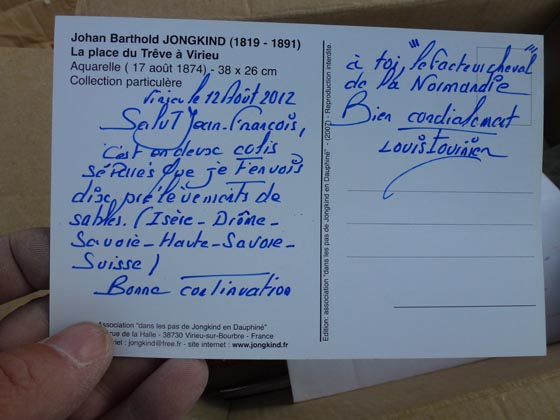 Johan Barthold JONGKIND (1819 - 1891)
La place du Trêve à Virieu
Aquarelle ( 17 août 1874) - 38 x 26 cm
Collection particulère
Virieu le 12 Août 2012
Salut Jean-François,
C'est en deux colis
séparés que je t'envois
dix prélèvements de
sables. (Isère - Drôme -
Savoie - Haute-Savoie -
Suisse)
Bonne continuation
Association "dans les pas de Jongkind en Dauphiné"
rue de la Halle - 38730 Virieu-sur-Bourbre - France
jongkind@free.fr - site internet : www.jongkind.fr
Edition: association "dans les pas de Jongkind en Dauphiné" - (2007) - Reproduction interdite.
à toi, "le facteur cheval
de la Normandie"
Bien cordialement
Louis Tournier